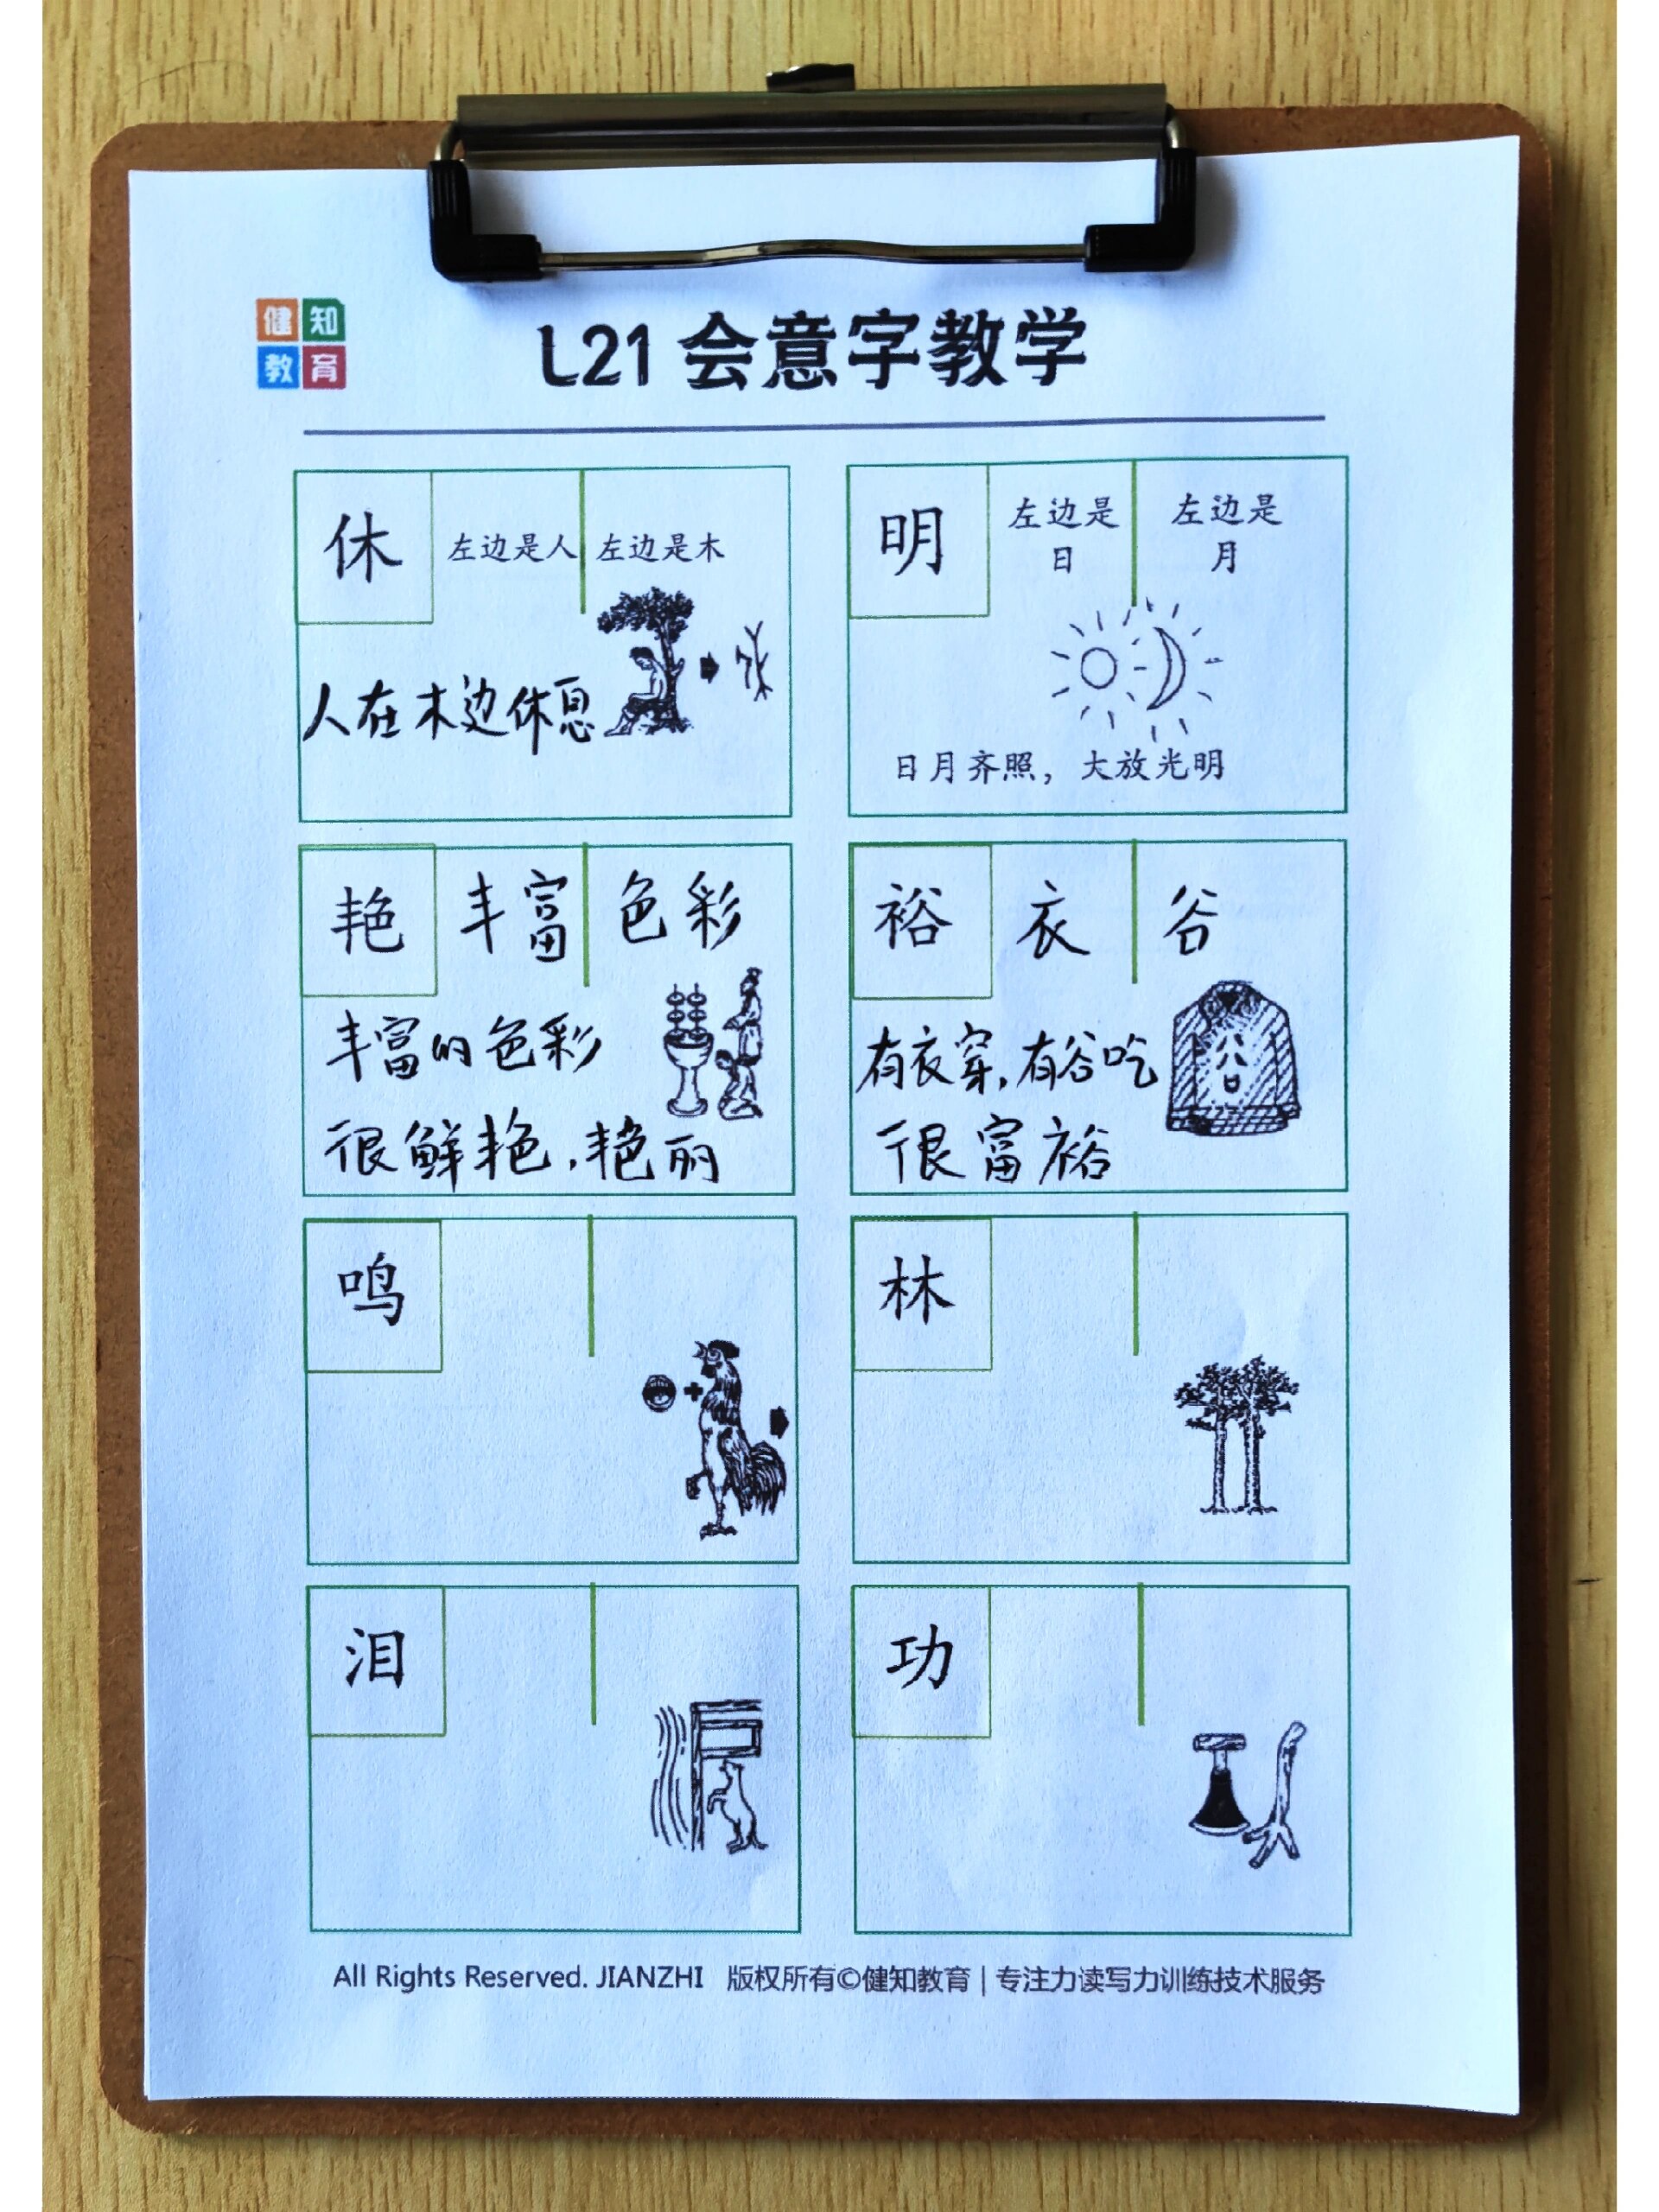 健知
教育
L21 会意字教学
休
左边是人
左边是木
人在木边休息
明
左边是
日
左边是
月
日月齐照，大放光明
艳
丰富
色彩
丰富的色彩
很鲜艳，艳丽
裕
衣
谷
有衣穿，有谷吃
很富裕
鸣
林
泪
功
All Rights Reserved. JIANZHI 版权所有©健知教育 | 专注力读写力训练技术服务